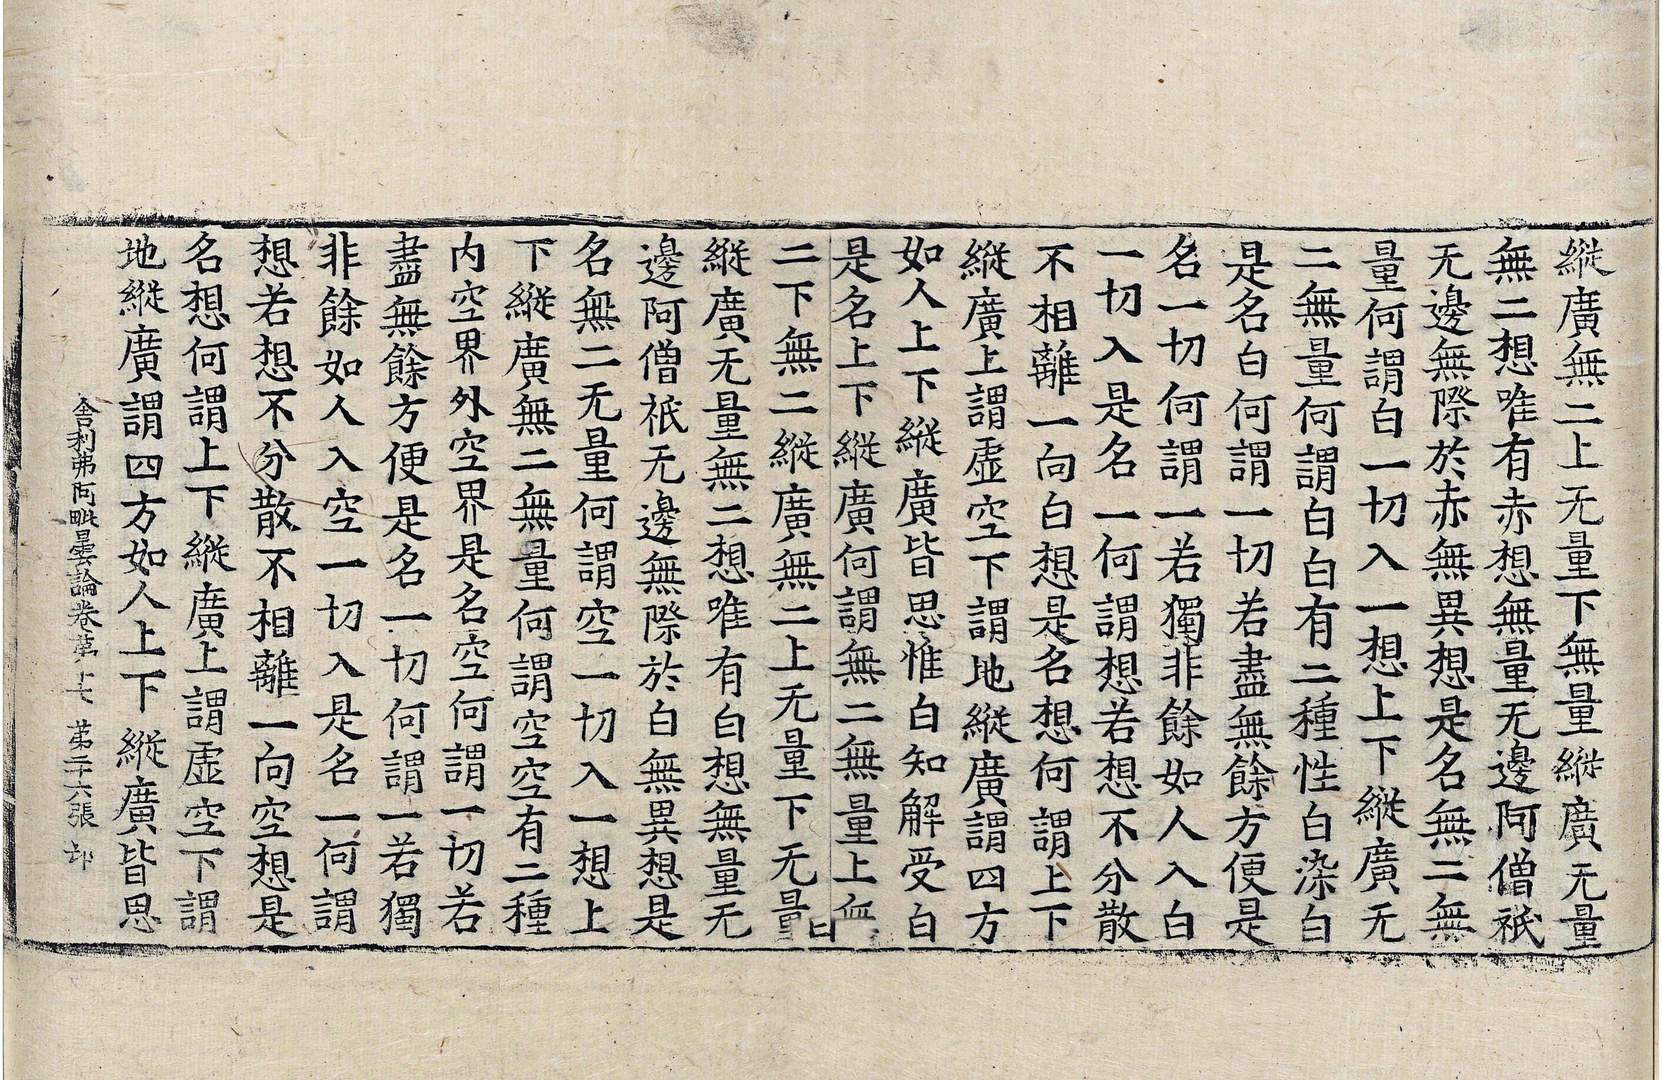 縱廣無二上无量下無量縱廣无量
無二想唯有赤想無量无邊阿僧祇
无邊無際於赤無異想是名無二無
量何謂白一切入一想上下縱廣无
二無量何謂白白有二種性白染白
是名白何謂一切若盡無餘方便是
名一切何謂一若獨非餘如人入白
一切入是名一何謂想若想不分散
不相離一向白想是名想何謂上下
縱廣上謂虛空下謂地縱廣謂四方
如人上下縱廣皆思惟白知解受白
是名上下縱廣何謂無二無量上無
二下無二縱廣無二上无量下无量
縱廣无量無二想唯有白想無量无
邊阿僧祇无邊無際於白無異想是
名無二无量何謂空一切入一想上
下縱廣無二無量何謂空空有二種
內空界外空界是名空何謂一切若
盡無餘方便是名一切何謂一若獨
非餘如人入空一切入是名一何謂
想若想不分散不相離一向空想是
名想何謂上下縱廣上謂虛空下謂
地縱廣謂四方如人上下縱廣皆思
舍利弗阿毗曇論卷第十七 第二十六張